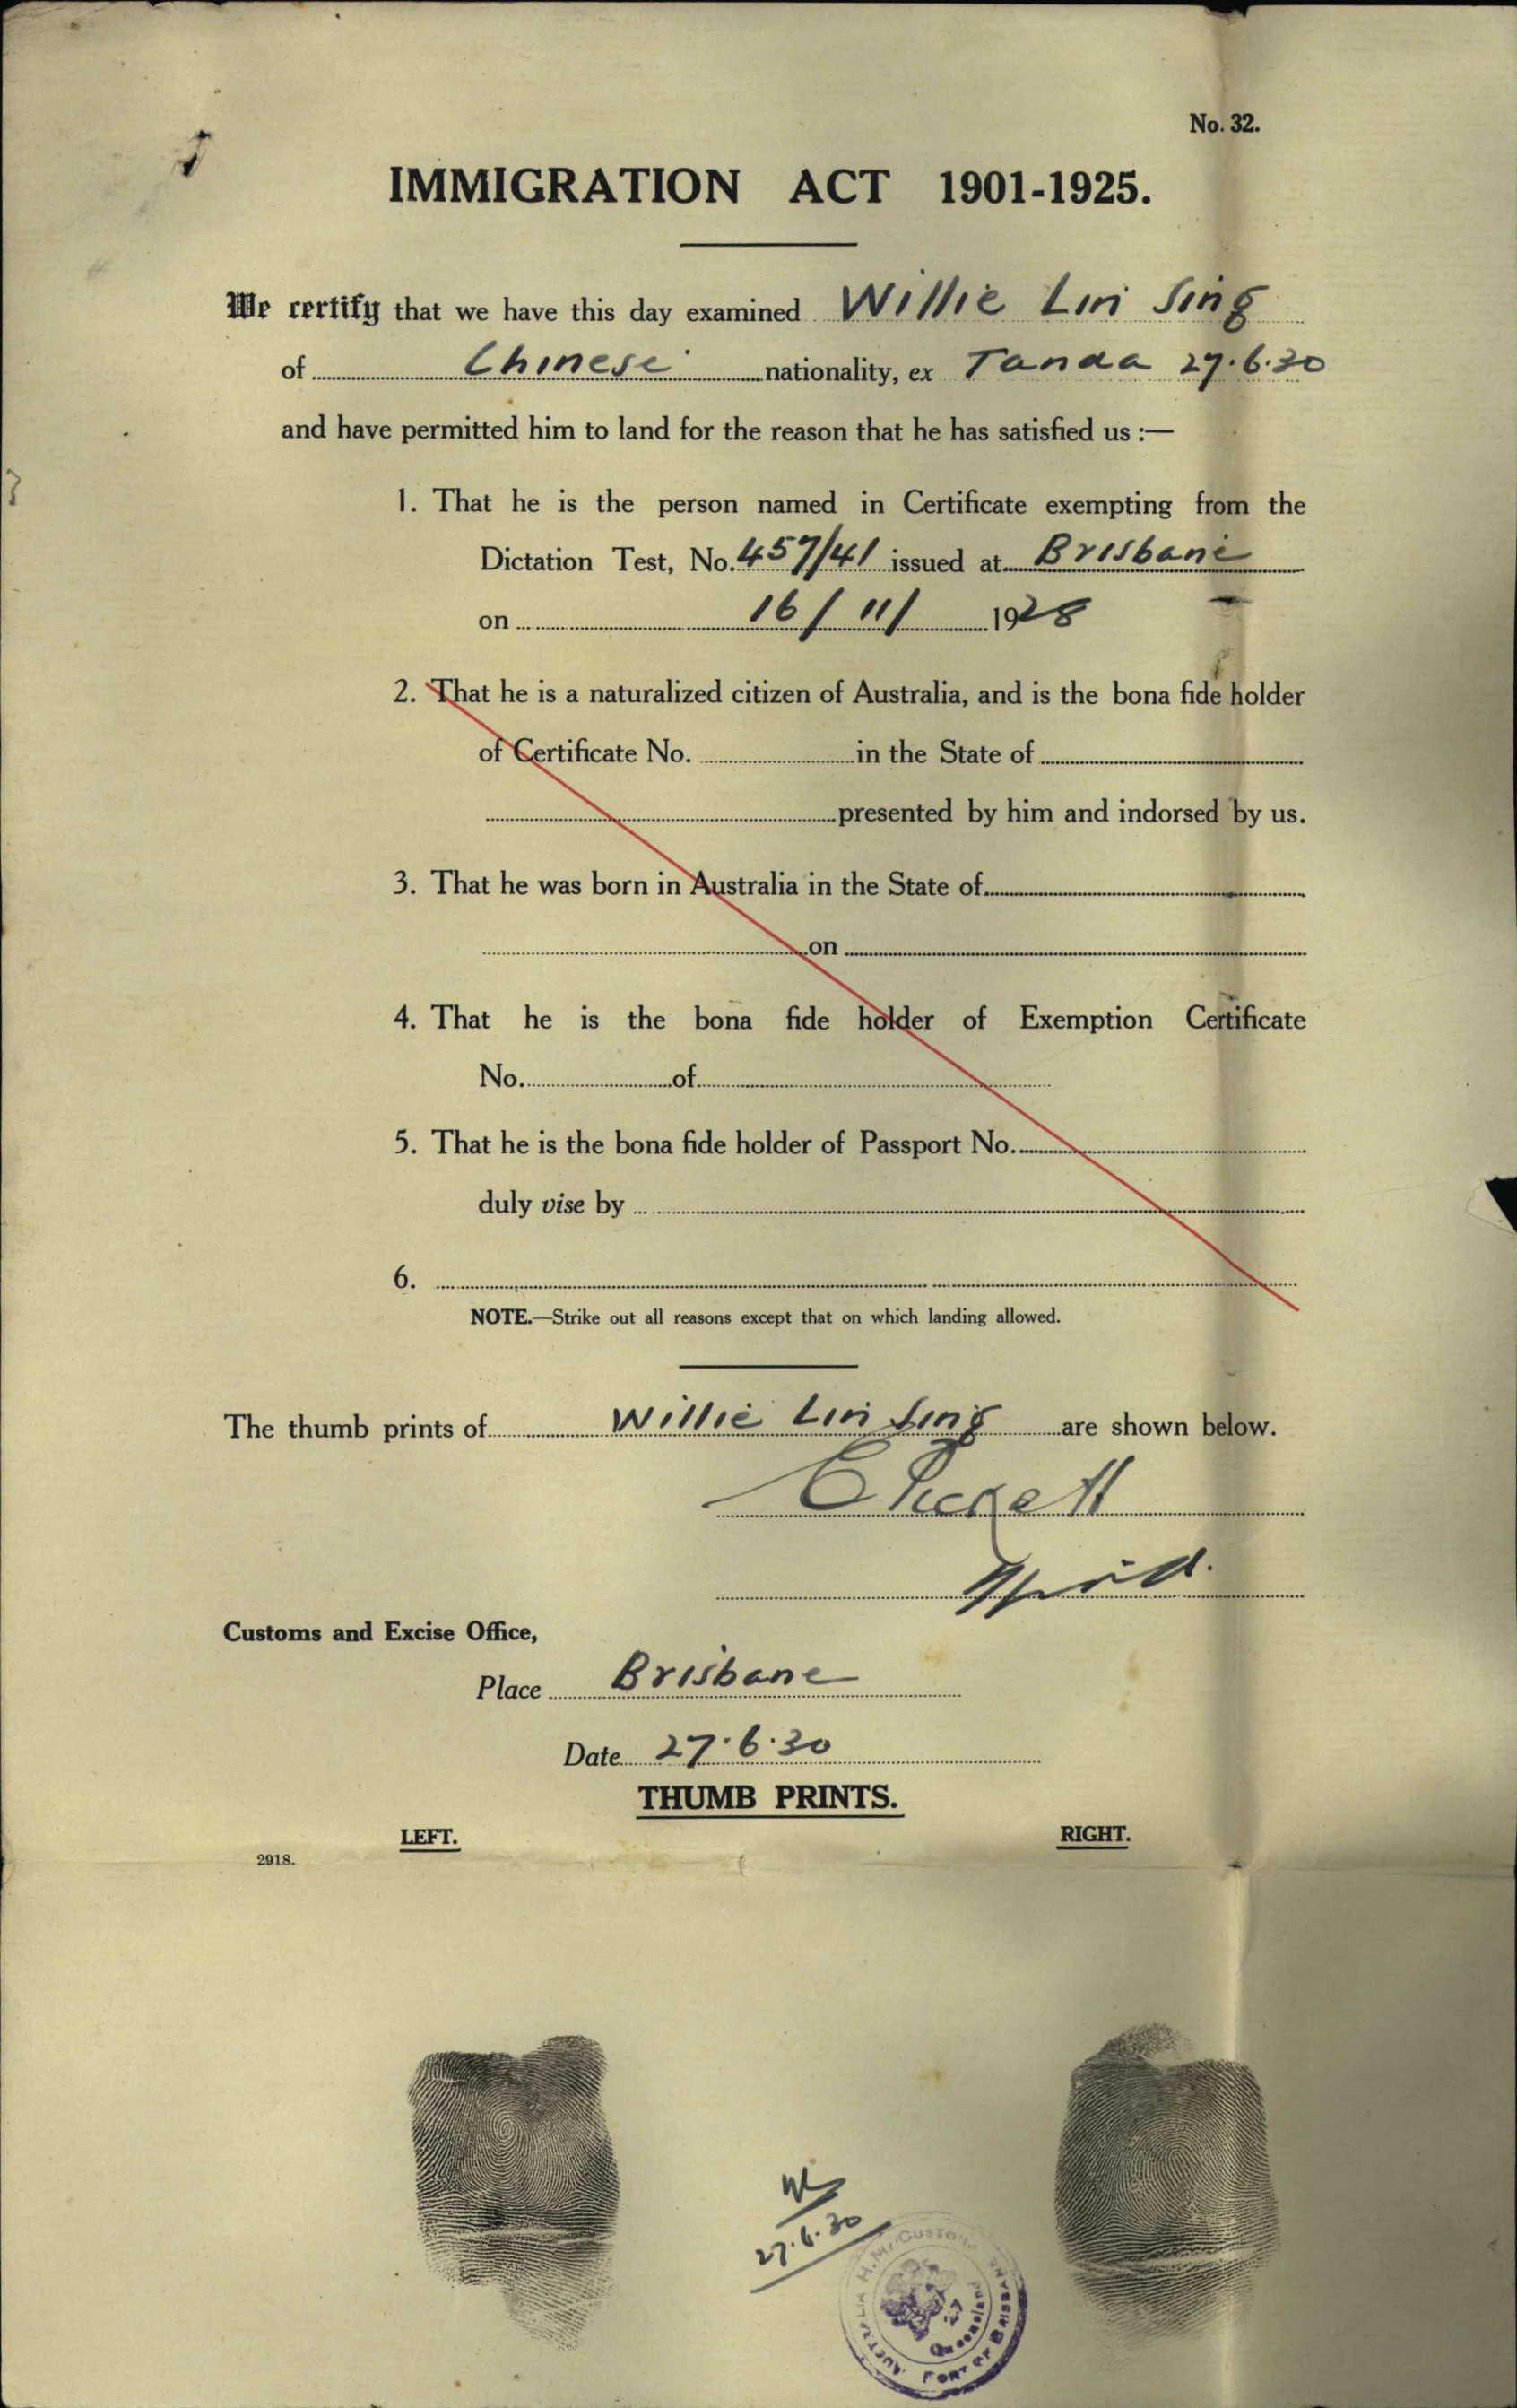 No. 32.
IMMIGRATION ACT 1901-1925.
We certify that we have this day examined Willie Lin Sing
of Chinese nationality, ex Tanda 27.6.30
and have permitted him to land for the reason that he has satisfied us :—
1. That he is the person named in Certificate exempting from the
Dictation Test, No. 457/41 issued at Brisbane
on 16/11/ 1928
2. That he is a naturalized citizen of Australia, and is the bona fide holder
of Certificate No. in the State of
presented by him and indorsed by us.
3. That he was born in Australia in the State of
on
4. That he is the bona fide holder of Exemption Certificate
No. of
5. That he is the bona fide holder of Passport No.
duly vise by
6.
NOTE.—Strike out all reasons except that on which landing allowed.
The thumb prints of Willie Lin Sing are shown below.
Customs and Excise Office,
Place Brisbane
Date 27.6.30
THUMB PRINTS.
LEFT. RIGHT.
2918.
27.6.30
H.M. CUSTOMS
AUSTRALIA
27
Queensland
PORT OF BRISBANE